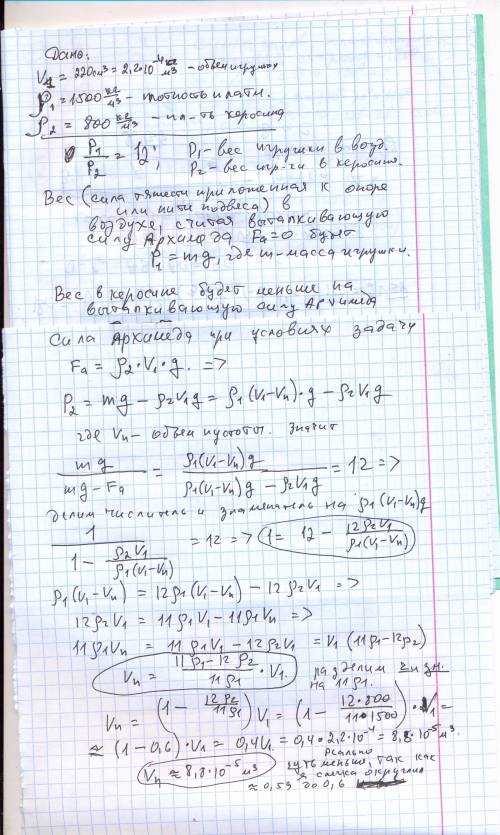 Дано:
V₁ = 220 см³ = 2,2·10⁻⁴ м³ – объем игрушки
ρ₁ = 1500 кг/м³ – плотность пластм.
ρ₂ = 800 кг/м³ – пл-ть керосина
P₁/P₂ = 12; P₁ – вес игрушки в возд.
P₂ – вес игр-ки в керосине.
Вес (сила тяжести приложенная к опоре
или нити подвеса) в
воздухе, считая выталкивающую
силу Архимеда Fa = 0 будет
P₁ = mg, где m – масса игрушки.
Вес в керосине будет меньше на
выталкивающую силу Архимеда
Сила Архимеда при условиях задачи
Fa = ρ₂·V₁·g. =>
P₂ = mg – ρ₂V₁g = ρ₁(V₁–Vп)·g – ρ₂V₁g
где Vп – объем пустоты. Значит
mg/(mg – Fa) = ρ₁(V₁–Vп)g/(ρ₁(V₁–Vп)g – ρ₂V₁g) = 12 =>
делим числитель и знаменатель на ρ₁(V₁–Vп)g
1/(1 – ρ₂V₁/(ρ₁(V₁–Vп))) = 12 => 1 = 12 – 12ρ₂V₁/(ρ₁(V₁–Vп))
ρ₁(V₁–Vп) = 12ρ₁(V₁–Vп) – 12ρ₂V₁ =>
12ρ₂V₁ = 11ρ₁V₁ – 11ρ₁Vп =>
11ρ₁Vп = 11ρ₁V₁ – 12ρ₂V₁ = V₁(11ρ₁–12ρ₂)
Vп = (11ρ₁–12ρ₂)/(11ρ₁) · V₁. разделим ч и зн.
на 11ρ₁.
Vп = (1 – 12ρ₂/(11ρ₁)) V₁ = (1 – 12·800/(11·1500))·V₁ =
≈ (1 – 0,6)·V₁ = 0,4V₁ = 0,4·2,2·10⁻⁴ = 8,8·10⁻⁵ м³.
Vп ≈ 8,8·10⁻⁵ м³ реально
чуть меньше, так как
я слегка округлил
≈ 0,59 до 0,6